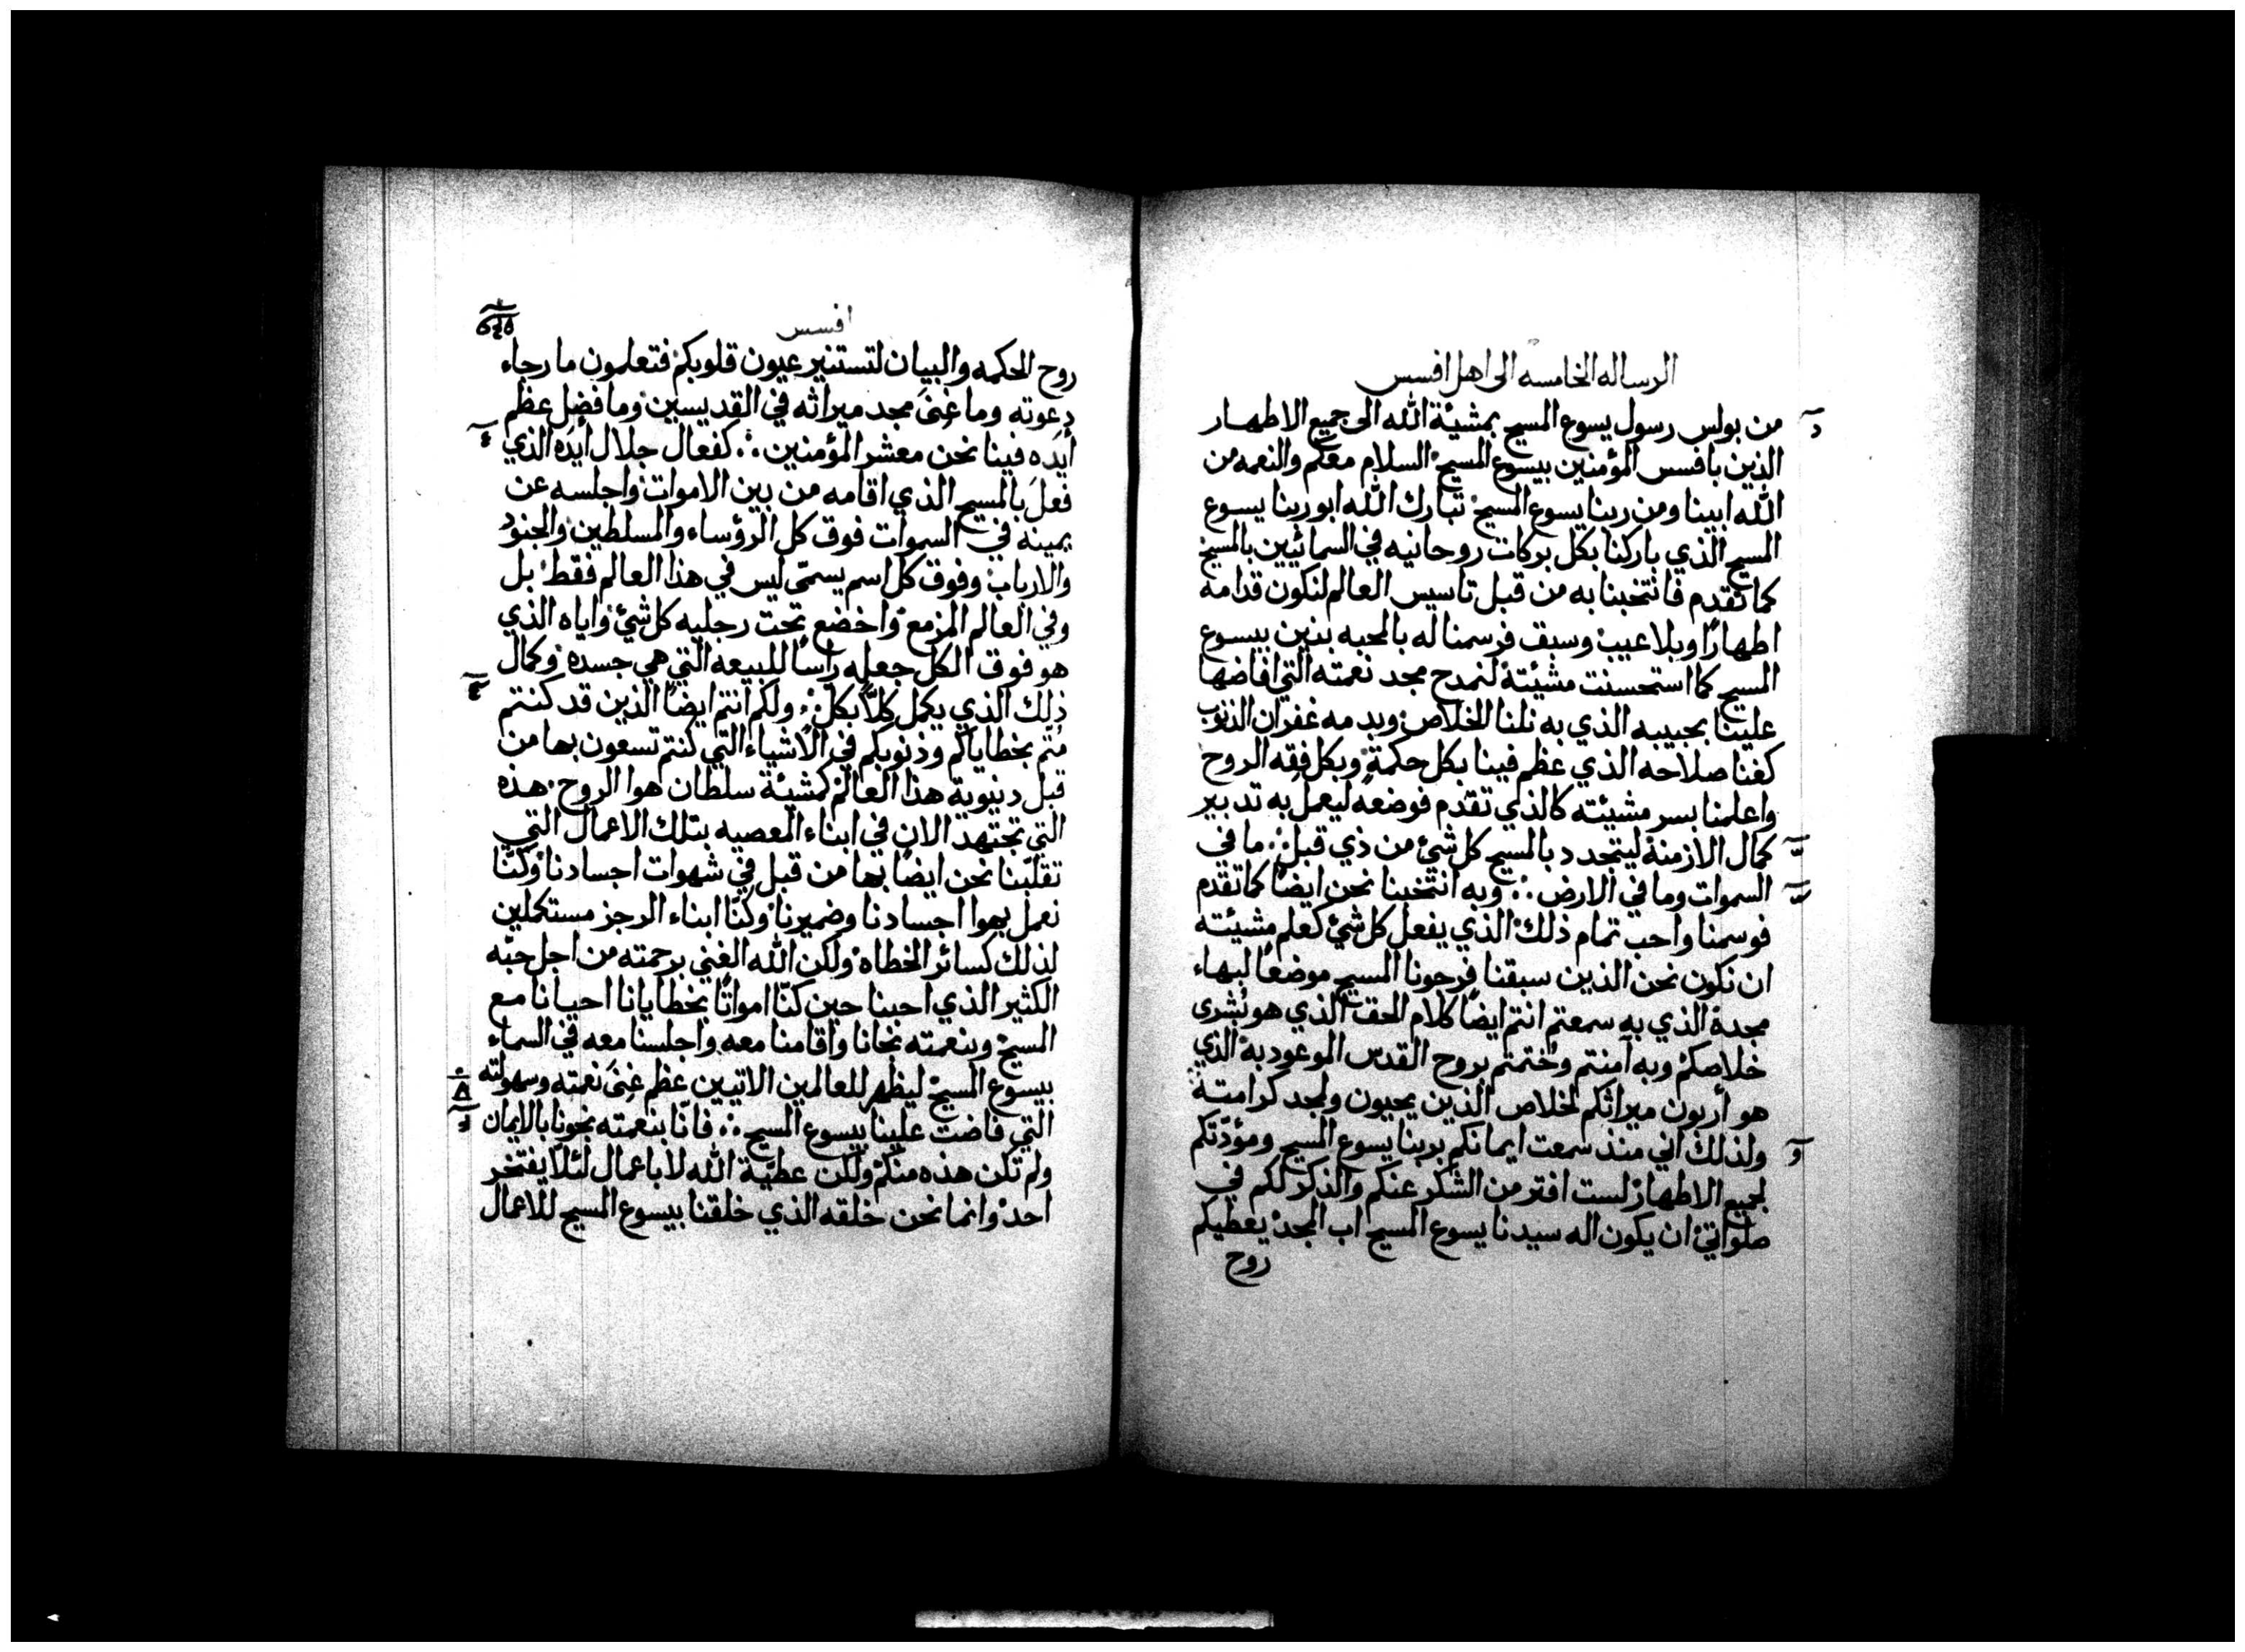 الرساله الخامسه الى اهل افسس
من بولس رسول يسوع المسيح بمشيئة الله الى جميع الاطهار
الذين بافسس المؤمنين بيسوع المسيح السلام معكم والنعمه من
الله ابينا ومن ربنا يسوع المسيح تبارك الله ابو ربنا يسوع
المسيح الذي باركنا بكل بركات روحانيه في السمائيين بالمسيح
كما تقدم فانتخبنا به من قبل تاسيس العالم لنكون قدامه
اطهارًا وبلا عيب وسبق فرسمنا له بالمحبه بنين بيسوع
المسيح كما استحسنت مشيئته لنمدح مجد نعمته التي افاضها
علينا بحبيبه الذي به نلنا الخلاص وبدمه غفران الذنوب
كغنا صلاحه الذي عظم فينا بكل حكمة وبكل فقه الروح
واعلمنا بسر مشيئته كالذي تقدم فوضعه ليعمل به تدبير
كمال الازمنة ليتجدد بالمسيح كل شئ من ذي قبل ما في
السموات وما في الارض وبه انتخبنا نحن ايضًا كما تقدم
فوسمنا واحب تمام ذلك الذي يفعل كل شئ كعلم مشيئته
ان نكون نحن الذين سبقنا فرجونا المسيح موضعًا لبهاء
مجدة الذي به سمعتم انتم ايضًا كلام الحق الذي هو بُشرى
خلاصكم وبه آمنتم وختمتم بروح القدس الموعود به الذي
هو أربون ميراثكم لخلاص الذين يحيون ولمجد كرامته
ولذلك اني منذ سمعت ايمانكم بربنا يسوع المسيح ومودّتكم
لجميع الاطهار لست افتر من الشكر عنكم والذكر لكم في
صلواتي ان يكون اله سيدنا يسوع المسيح اب المجد يعطيكم
روح
افسس
روح الحكمه والبيان لتستنير عيون قلوبكم فتعلمون ما رجاء
دعوته وما غنى مجد ميراثه في القديسين وما فضل عظم
أيده فينا نحن معشر المؤمنين كفعال جلال أيده الذي
فعل بالمسيح الذي اقامه من بين الاموات واجلسه عن
يمينه في السموات فوق كل الرؤساء والمسلطين والجنود
والارباب وفوق كل اسم يسمّى ليس في هذا العالم فقط بل
وفي العالم المزمع واخضع تحت رجليه كل شئ واياه الذي
هو فوق الكل جعله راسًا للبيعه التي هي جسده وكمال
ذلك الذي يكمل كلاً بكل ولكم انتم ايضًا الذين قد كنتم
مُتم بخطاياكم وذنوبكم في الاشياء التي كنتم تسعون بها من
قبل دنيوية هذا العالم كمشيئة سلطان هوا الروح هذه
التي تجتهد الان في ابناء المعصيه بتلك الاعمال التي
تقلّبنا نحن ايضًا بها من قبل في شهوات اجسادنا وكنّا
نعمل بهوا اجسادنا وضميرنا وكنّا ابناء الرجز مستكملين
لذلك كسائر الخطاه ولكن الله الغني برحمته من اجل حبّه
الكثير الذي احبنا حين كنّا امواتًا بخطايانا احيانا مع
المسيح وبنعمته نجانا واقامنا معه واجلسنا معه في السماء
بيسوع المسيح ليظهر للعالمين الاتيين عظم غنى نعمته وسهولته
التي فاضت علينا بيسوع المسيح فانّا بنعمته نجونا بالايمان
ولم تكن هذه منكم ولكن عطيّة الله لا باعمال لئلا يفتخر
احد وانما نحن خلقه الذي خلقنا بيسوع المسيح للاعمال